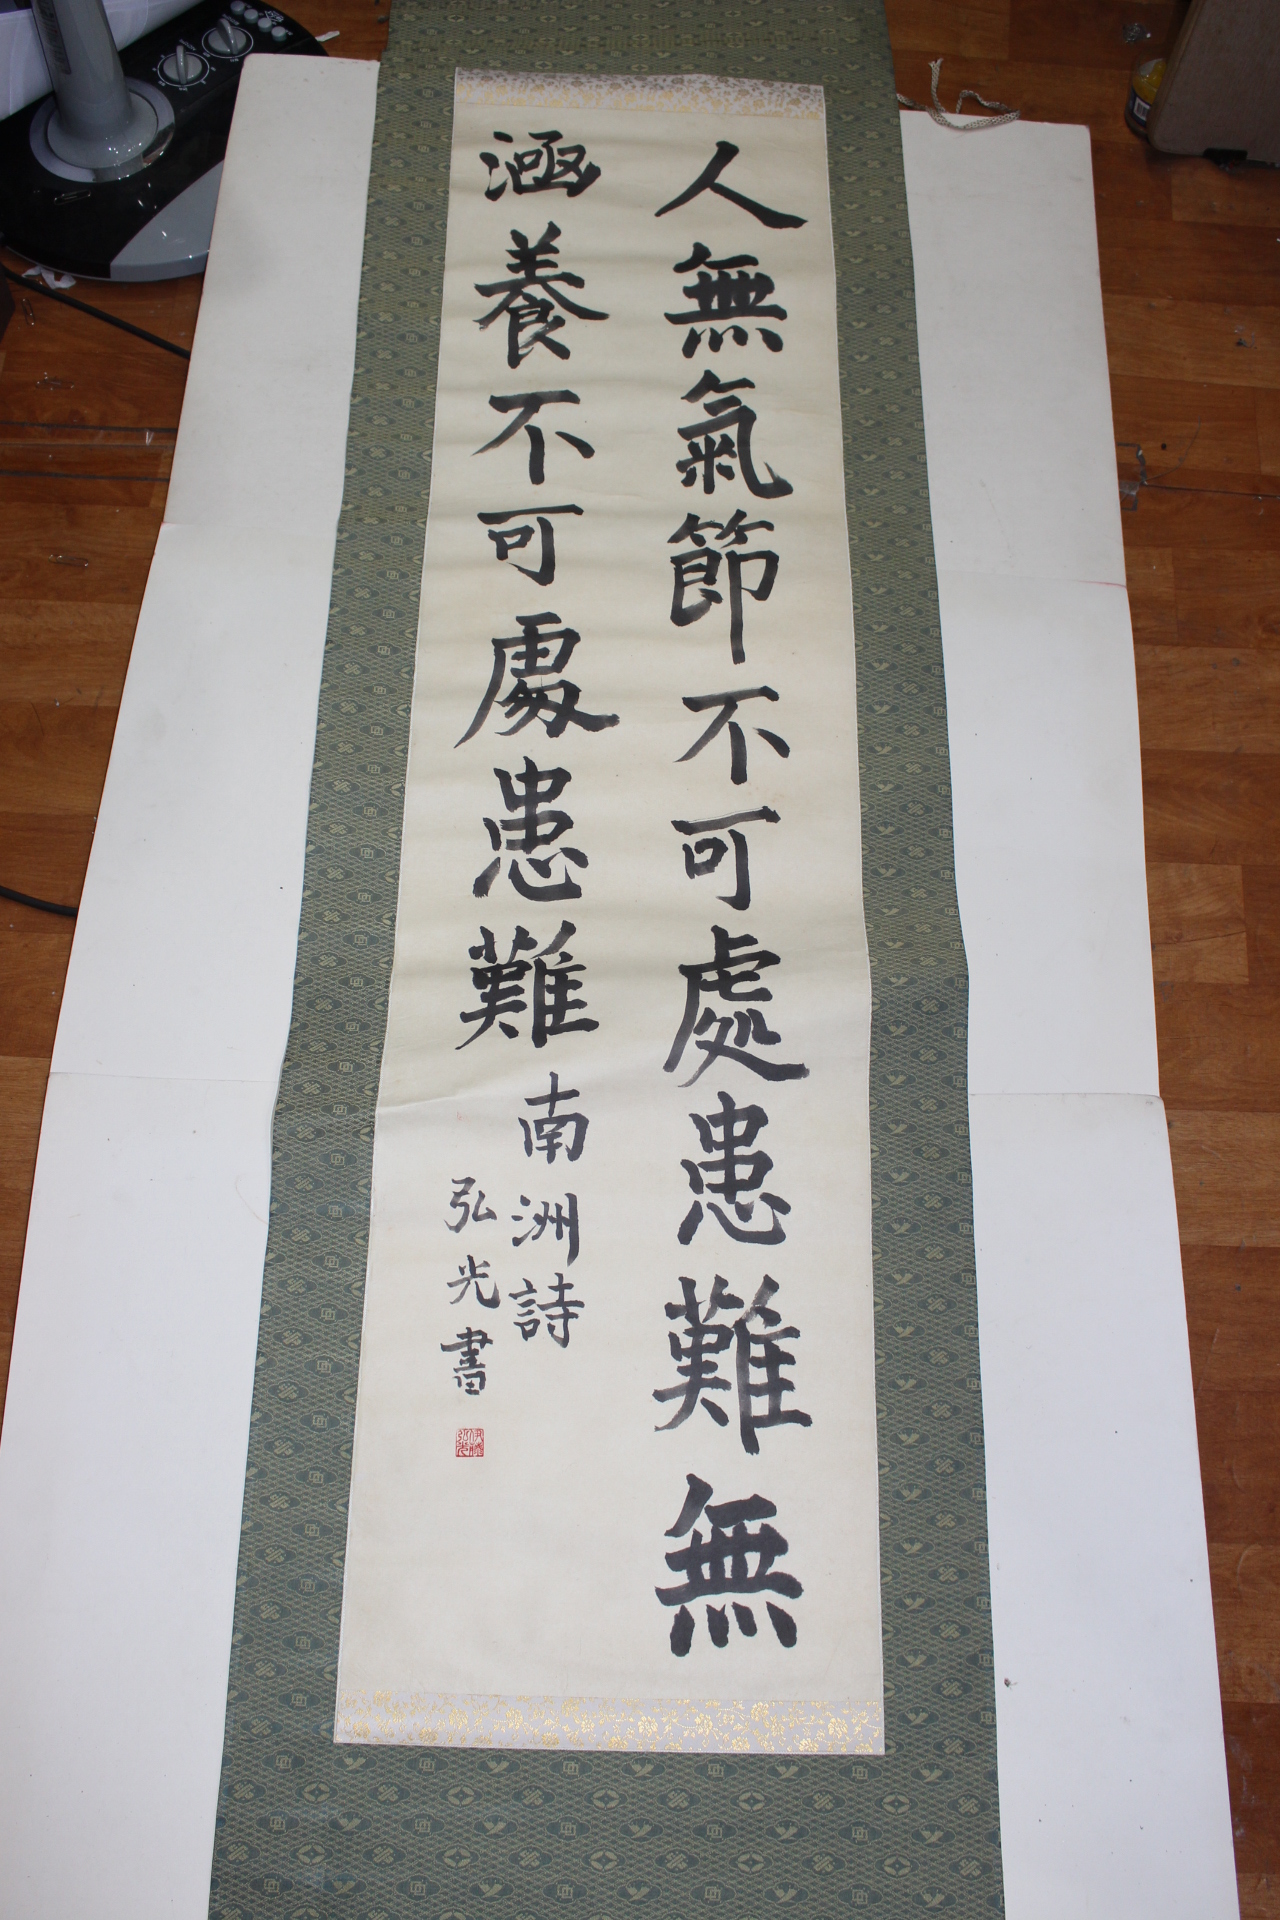 人無氣節不可處患難無
涵養不可處患難
南洲詩
弘光書